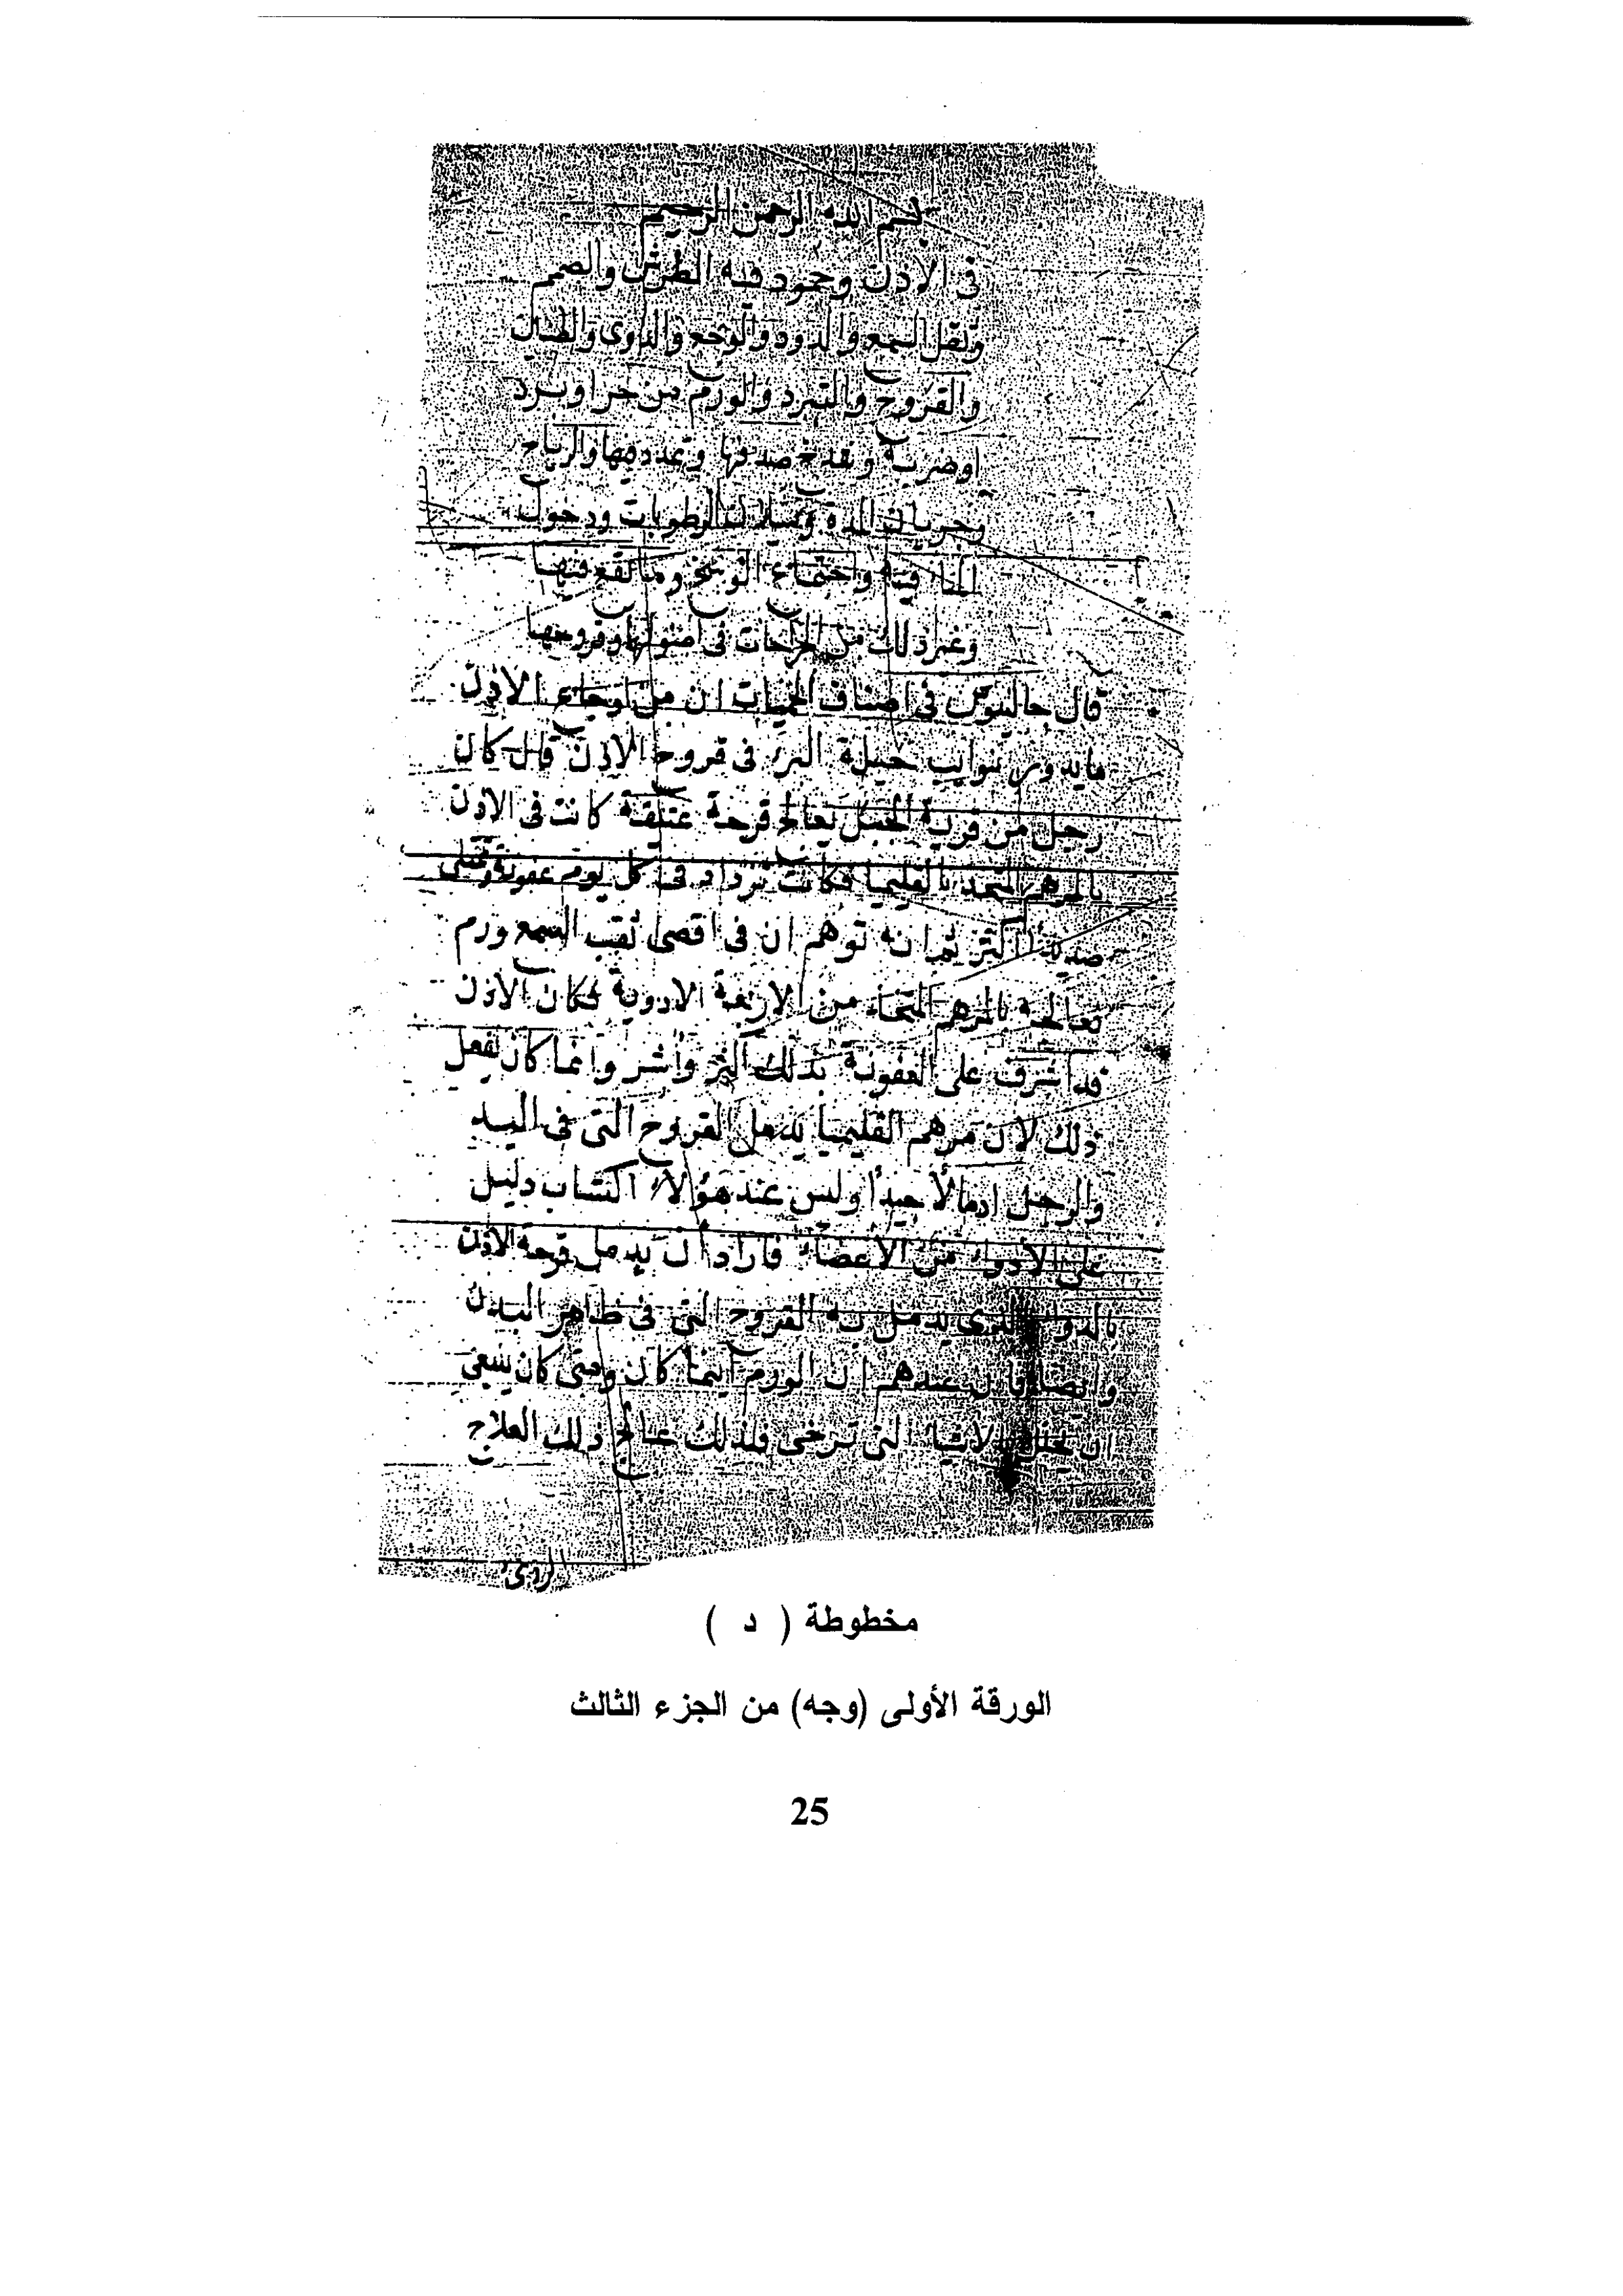 بسم الله الرحمن الرحيم
فى الأذن وجمود فيه الطرش والصمم
وثقل السمع والدود والوجع والدوى والطنين
والقروح والتبرد والورم من حر او برد
او ضربة و صدفها وتمددها والرياح
وجريان المدة وسيلان الرطوبات ودخول
الما فيه واجتماع الوسخ وما يقع فيها
وغير ذلك من الجراحات فى اصولها وقروحها
قال جالينوس فى اصناف الحميات ان من اوجاع الاذن
ما يدور بنوايب حيلة البرء فى قروح الاذن قال كان
رجل من فرية الجبل يعالج قرحة عتيقة كانت فى الاذن
بالمرهم المتخذ بالقليميا فكانت تزداد فى كل يوم عفونة وتمتلى
صديدًا اكثر ثم انه توهم ان فى اقصى ثقب السمع ورم
فعالجه بالمرهم المتخذ من الاربعة الادوية فكان الاذن
قد اشرف على العفونة بذلك اكثر وأشر وانما كان يفعل
ذلك لان مرهم القليميا يدمل القروح التى فى اليد
والرجل ادمالاً جيداً وليس عند هؤلاء اكتساب دليل
على الادواء من الأعضاء فاراد أن يدمل قرحة الاذن
بالدواء الذى يدمل به القروح التى فى ظاهر البدن
وايضا فان عندهم ان الورم اينما كان ومتى كان ينبغى
ان يحلل بالاشياء التى ترخى فلذلك عالج ذلك العلاج
الردى
مخطوطة ( د )
الورقة الأولى (وجه) من الجزء الثالث
25